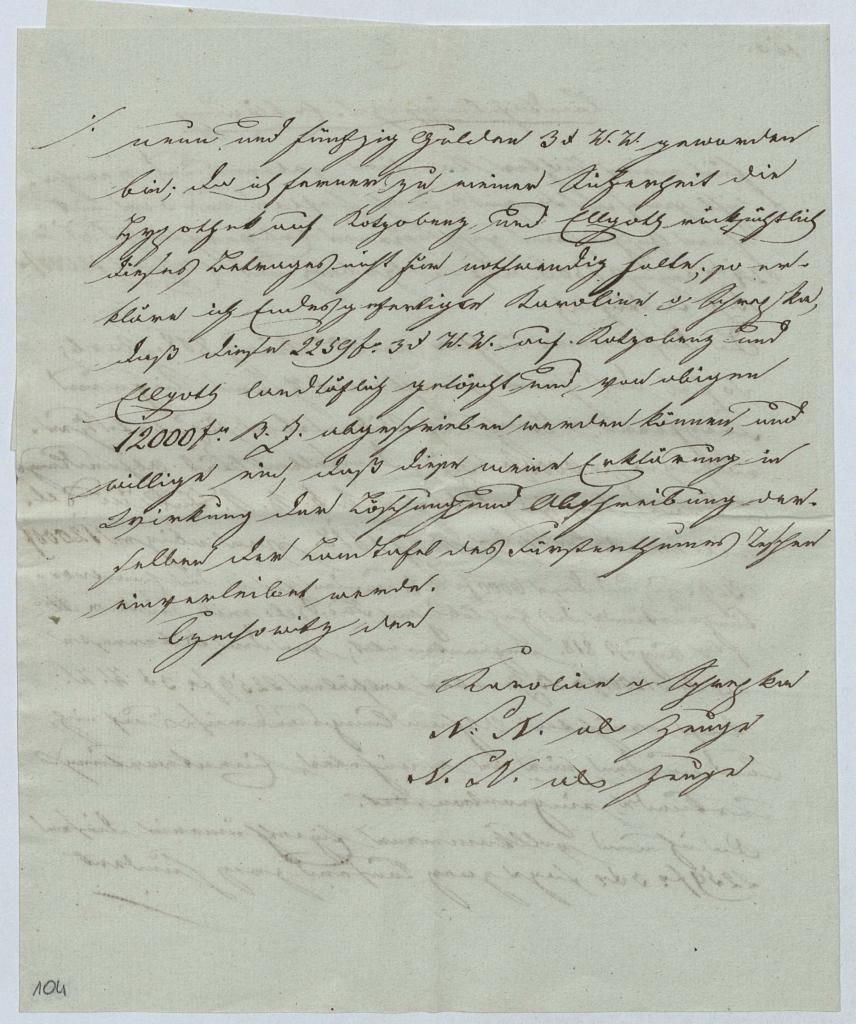 neun und fünfzig Gulden 3 x W. W. geworden
bin; da ich ferner zu meiner Sicherheit die
Hypothek auf Kotzobenz und Ellgoth rücksichtlich
dieses Betrages nicht für nothwendig halte, so er-
kläre ich Endesgefertigte Karoline v
daß diese 2259 f. 3 x W. W. auf Kotzobenz und
Ellgoth landtäflich gelöscht und von obigen
12000 f. B. Z. abgeschrieben werden können, und
willige ein, daß diese meine Erklärung in
Wirkung der Löschung und Abschreibung der-
selben der Landtafel des Fürstenthumes Teschen
einverleibet werde.
den
Karoline v
N. N. als Zeuge
N. N. als Zeuge
104